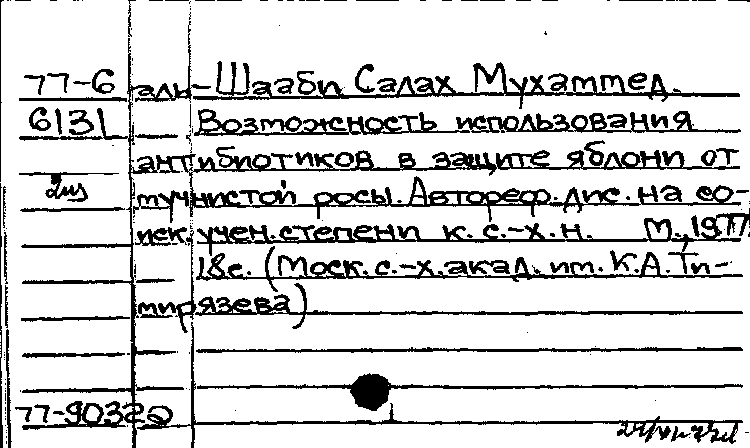 77-6 аль-Шааби Салах Мухаммед.
6131 Возможность использования
антибиотиков в защите яблони от
тучнистой росы. Автореф. дис. на со-
иск. учен. степени к. с.-х. н. М., 1977
18с. (Моск. с.-х. акад. им. К.А. Ти-
мирязева).
77-9032